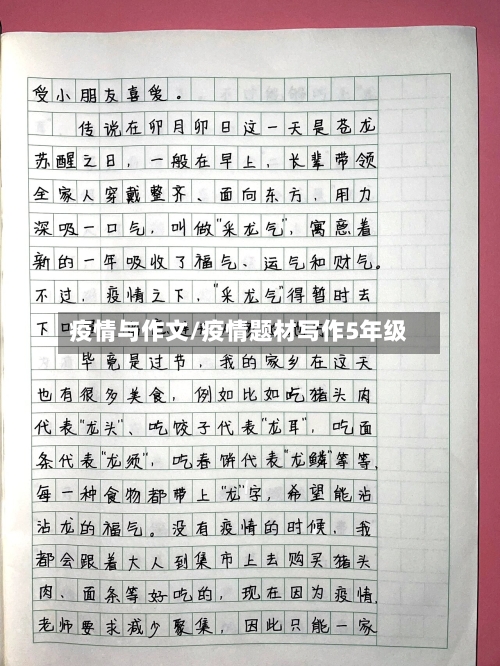 受小朋友喜爱。
传说在卯月卯日这一天是苍龙
苏醒之日，一般在早上，长辈带领
全家人穿戴整齐、面向东方，用力
深吸一口气，叫做"采龙气"，寓意着
新的一年吸收了福气、运气和财气。
不过，疫情之下，"采龙气"得暂时去
下
疫情与作文/疫情题材写作5年级
毕竟是过节，我的家乡在这天
也有很多美食，例如比如吃猪头肉
代表"龙头"、吃饺子代表"龙耳"，吃面
条代表"龙须"，吃春饼代表"龙鳞"等等，
每一种食物都带上"龙"字，希望能沾
沾龙的福气。没有疫情的时候，我
都会跟着大人到集市上去购买猪头
肉、面条等好吃的，现在因为疫情，
老师要求减少聚集，因此只能一家